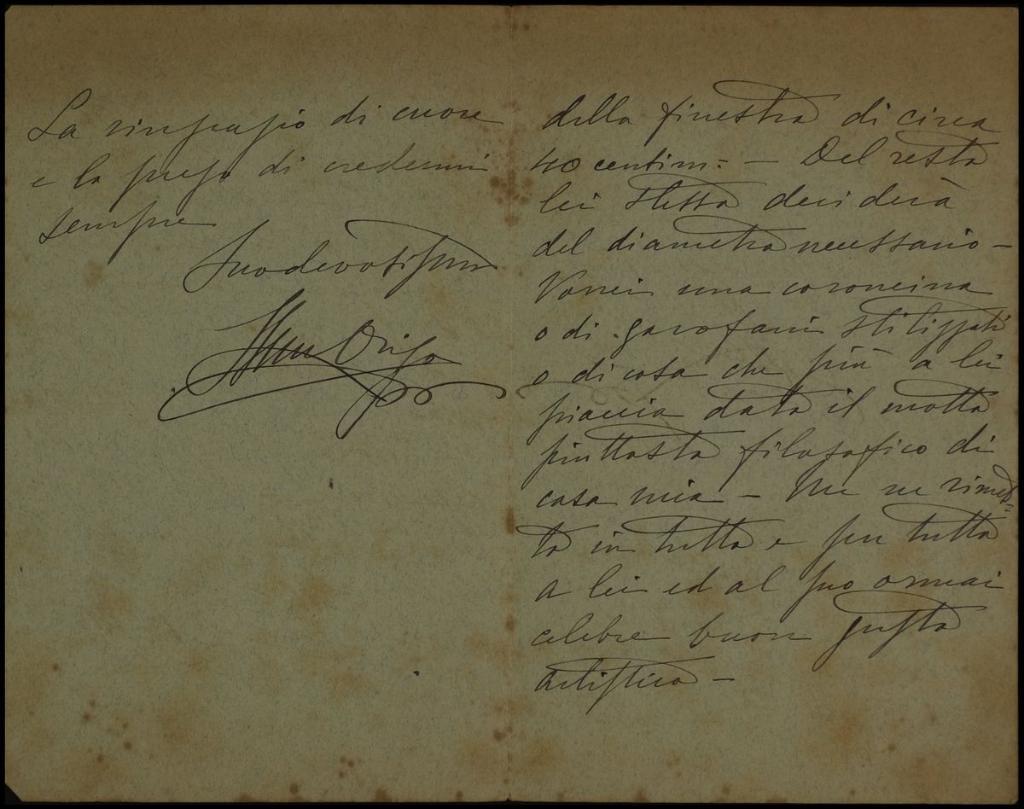 della finestra di circa
40 centim: — Del resto
lei stessa deciderà
del diametro necessario —
Vorrei una coroncina
o di garofani stilizzati
o di cosa che più a lei
piaccia dato il motto
piuttosto filosofico di
casa mia — Me ne rimet-
to in tutto e per tutto
a lei ed al suo ormai
celebre buon gusto
artistico —
La ringrazio di cuore
e la prego di credermi
sempre
Suo devotissimo
Origo